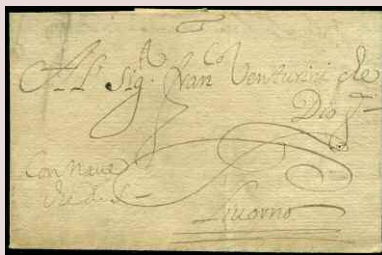 All Sig.r Fran.co Venturini che
Dio g.
Con Nave
Livorno